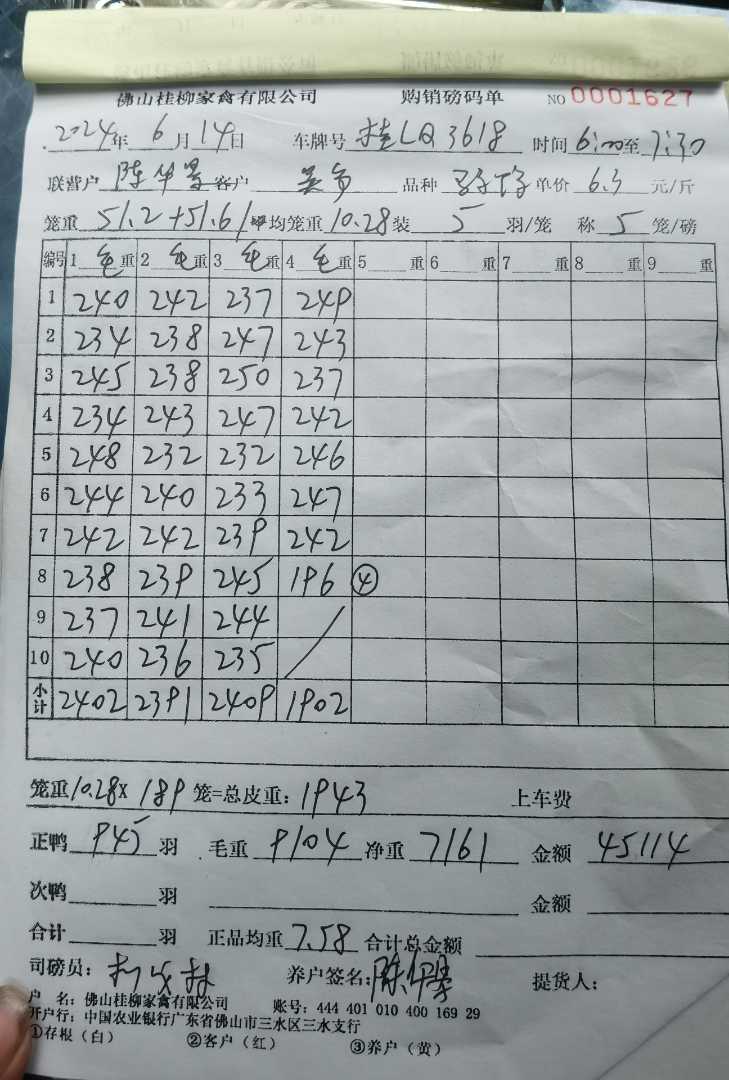 佛山桂柳家禽有限公司 购销磅码单 NO 0001627
2024年 6 月 14日 车牌号 桂LQ3618 时间 6:00至 7:30
联营户 陈华 客户 品种 单价 6.3 元/斤
笼重 51.2+51.6/ 平均笼重 10.28 装 5 羽/笼 称 5 笼/磅
编号 1 毛 重 2 毛 重 3 毛 重 4 毛 重 5 重 6 重 7 重 8 重 9 重
1 240 242 237 249
2 234 238 247 243
3 245 238 250 237
4 234 243 247 242
5 248 232 232 246
6 244 240 233 247
7 242 242 239 242
8 238 239 245 196 ④
9 237 241 244
10 240 236 235
小计 2402 2391 2409 1902
笼重 10.28× 189 笼=总皮重: 1943 上车费
正鸭 945 羽 毛重 9104 净重 7161 金额 45114
次鸭 羽 金额
合计 羽 正品均重 7.58 合计总金额
司磅员: 养户签名: 陈华 提货人:
户 名: 佛山桂柳家禽有限公司 账号: 444 401 010 400 169 29
开户行: 中国农业银行广东省佛山市三水区三水支行
①存根(白) ②客户(红) ③养户(黄)